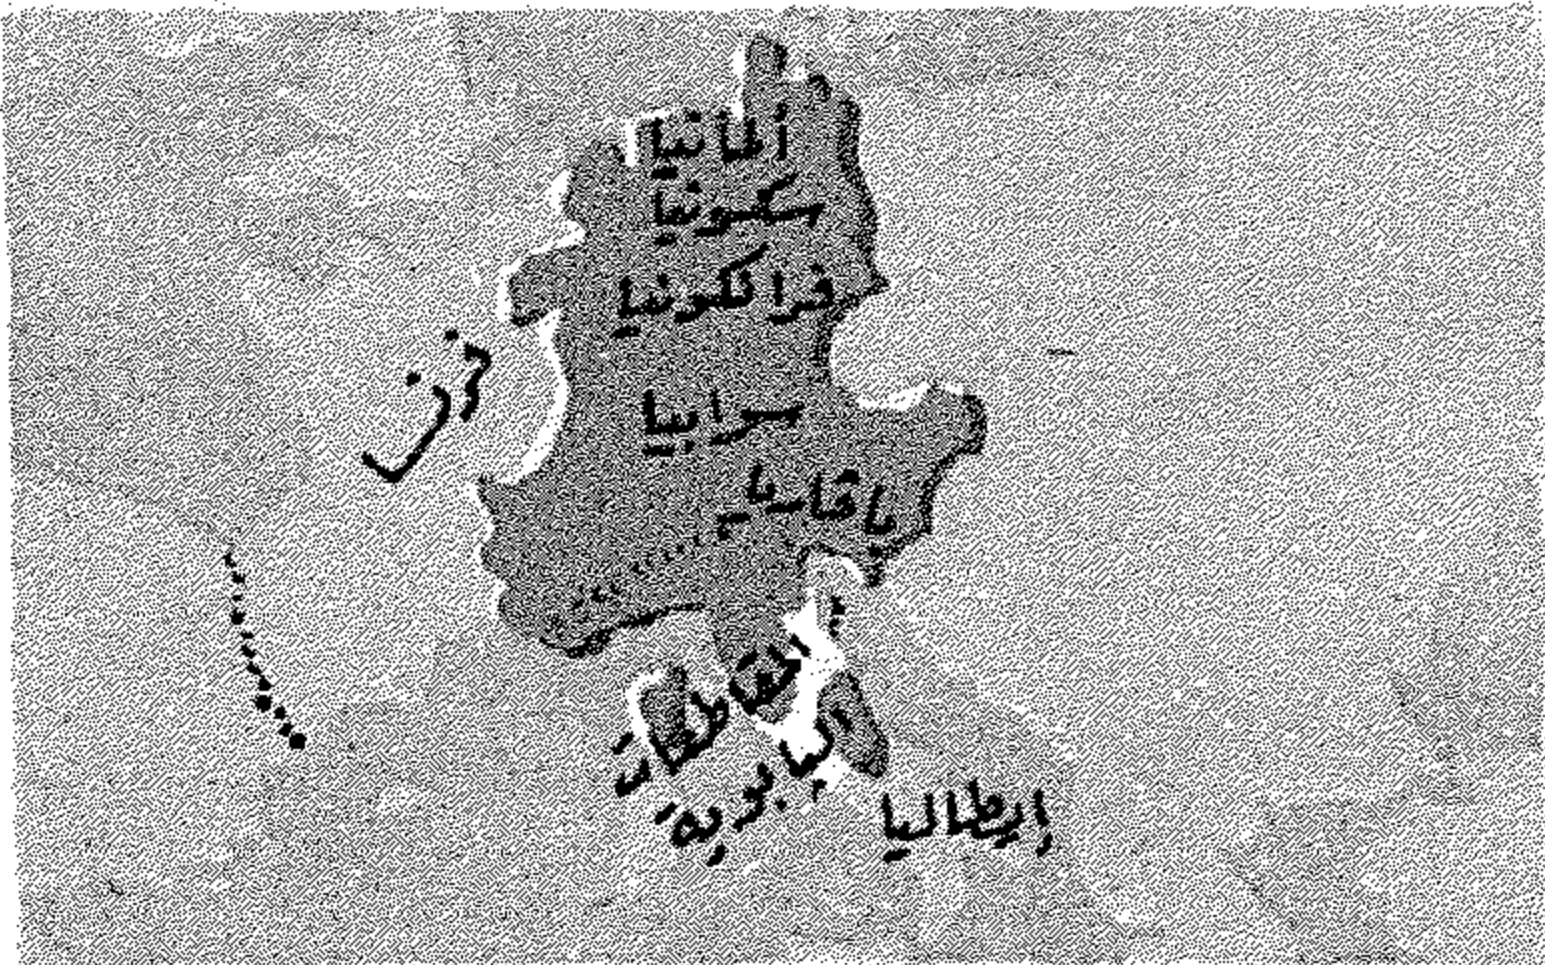 ألمانيا
سكونيا
فرانكونيا
سوابيا
باڤاريا
المقاطعات
البابوية
إيطاليا